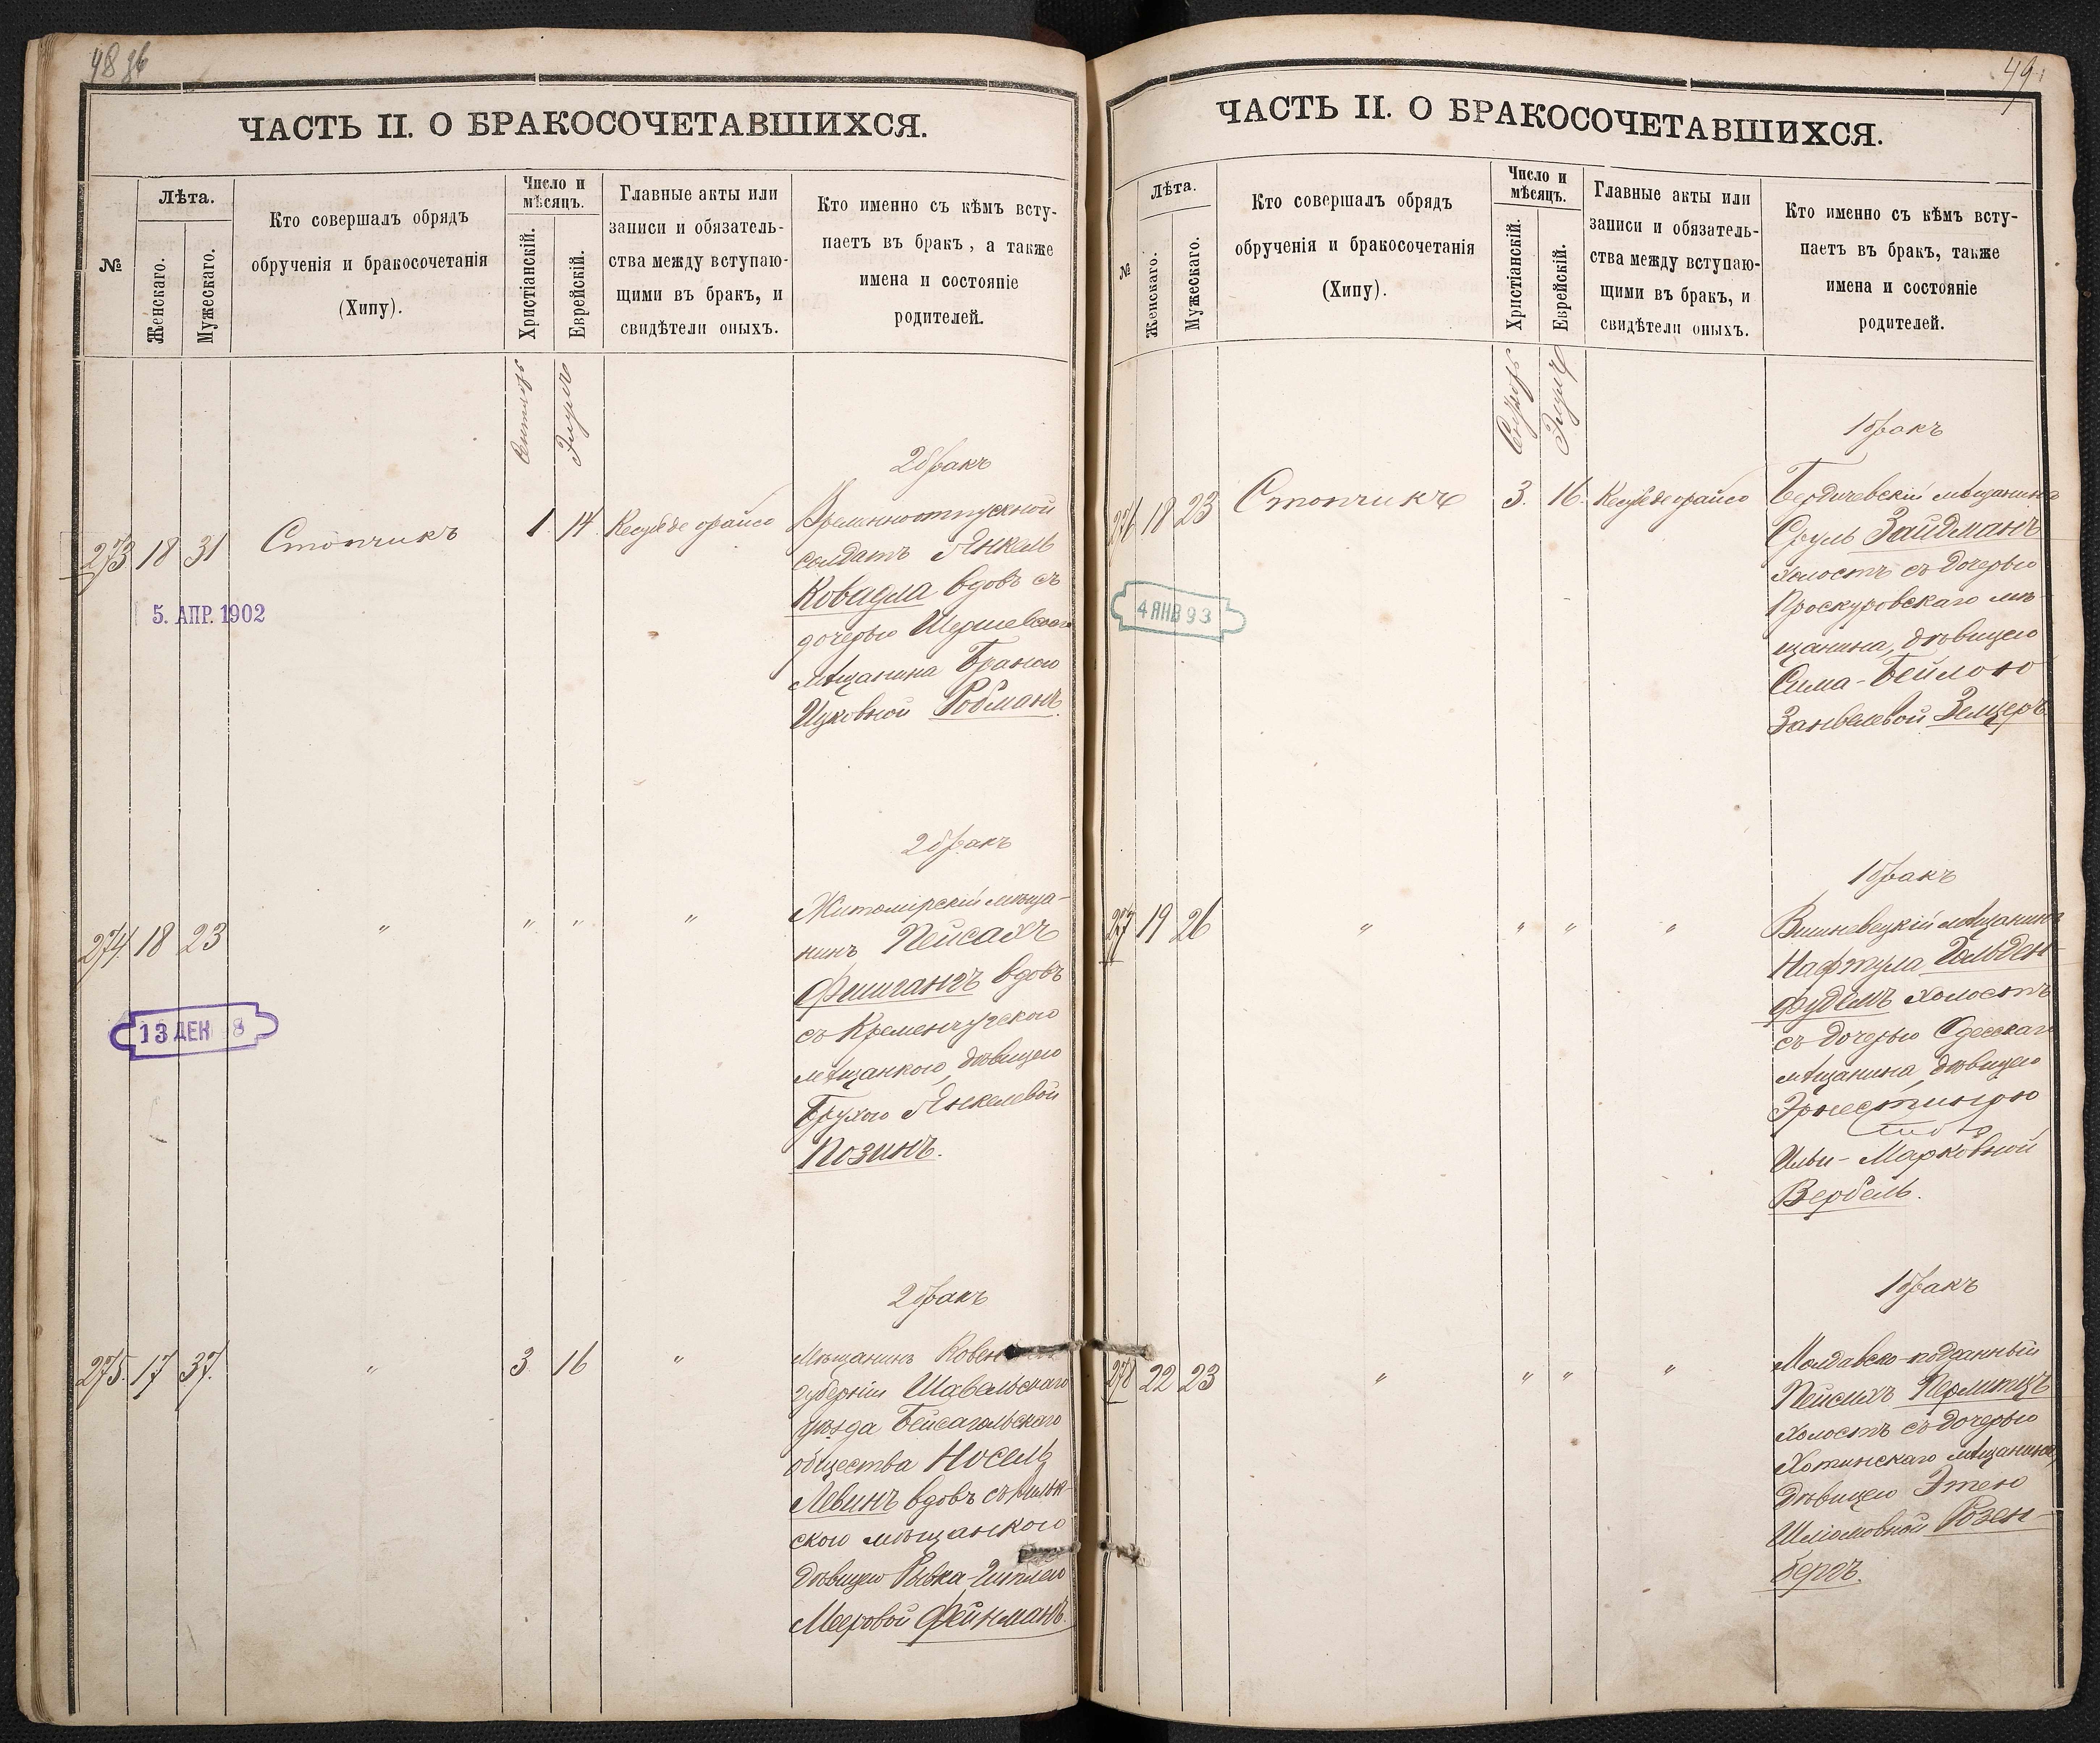 48 об
ЧАСТЬ II. О БРАКОСОЧЕТАВШИХСЯ.
№
Лѣта.
Женскаго.
Мужескаго.
Кто совершалъ обрядъ
обрученія и бракосочетанія
(Хипу).
Число и
мѣсяцъ.
Христіанскій.
Еврейскій.
Главные акты или
записи и обязатель-
ства между вступаю-
щими въ бракъ, и
свидѣтели оныхъ.
Кто именно съ кѣмъ всту-
паетъ въ бракъ, а также
имена и состояніе
родителей.
Сентябрь
Элулъ
2 бракъ
273 18 31 Стопчикъ 1. 14
Временноотпускной
солдатъ Янкель
Ковадла вдовъ съ
дочерью
мѣщанина Бранею
Ицковной Родманъ.
5. АПР. 1902
2 бракъ
274 18 23 " " " "
Житомирскій мѣща-
нинъ Пейсахъ
Фишгангъ вдовъ
съ Кременчугскою
мѣщанкою, дѣвицею
Брухою Янкелевой
Позинъ.
13 ДЕК 8
2 бракъ
275. 17 37. " 3 16 "
Мѣщанинъ
губерніи Шавельскаго
уѣзда Бейсагольскаго
общества Носель
Левинъ вдовъ
скою мѣщанкою
дѣвицею Рывка-Циплею
Мееровой Фейнманъ.
49
ЧАСТЬ II. О БРАКОСОЧЕТАВШИХСЯ.
№
Лѣта.
Женскаго.
Мужескаго.
Кто совершалъ обрядъ
обрученія и бракосочетанія
(Хипу).
Число и
мѣсяцъ.
Христіанскій.
Еврейскій.
Главные акты или
записи и обязатель-
ства между вступаю-
щими въ бракъ, и
свидѣтели оныхъ.
Кто именно съ кѣмъ всту-
паетъ въ бракъ, также
имена и состояніе
родителей.
Сентябрь
Элулъ
1 бракъ
276 18 23 Стопчикъ 3. 16.
Бердичевскій мѣщанинъ
Сруль Зайдманъ
холостъ съ дочерью
Проскуровскаго мѣ-
щанина, дѣвицею
Сима-Бейлою
Занвелевой Зельцеръ
4 ЯНВ 93
1 бракъ
277 19 26 " " " "
Вишневецкій мѣщанинъ
Нафтула Гольден-
фудемъ холостъ
съ дочерью Одесскаго
мѣщанина, дѣвицею
Эрнестиною
либо
Марковной
Вербель.
1 бракъ
278 22 23 " " " "
Молдавско-подданный
Пейсихъ Перлитцъ
холостъ съ дочерью
Хотинскаго мѣщанина,
дѣвицею Этею
Шліомовной Розен-
бергъ.